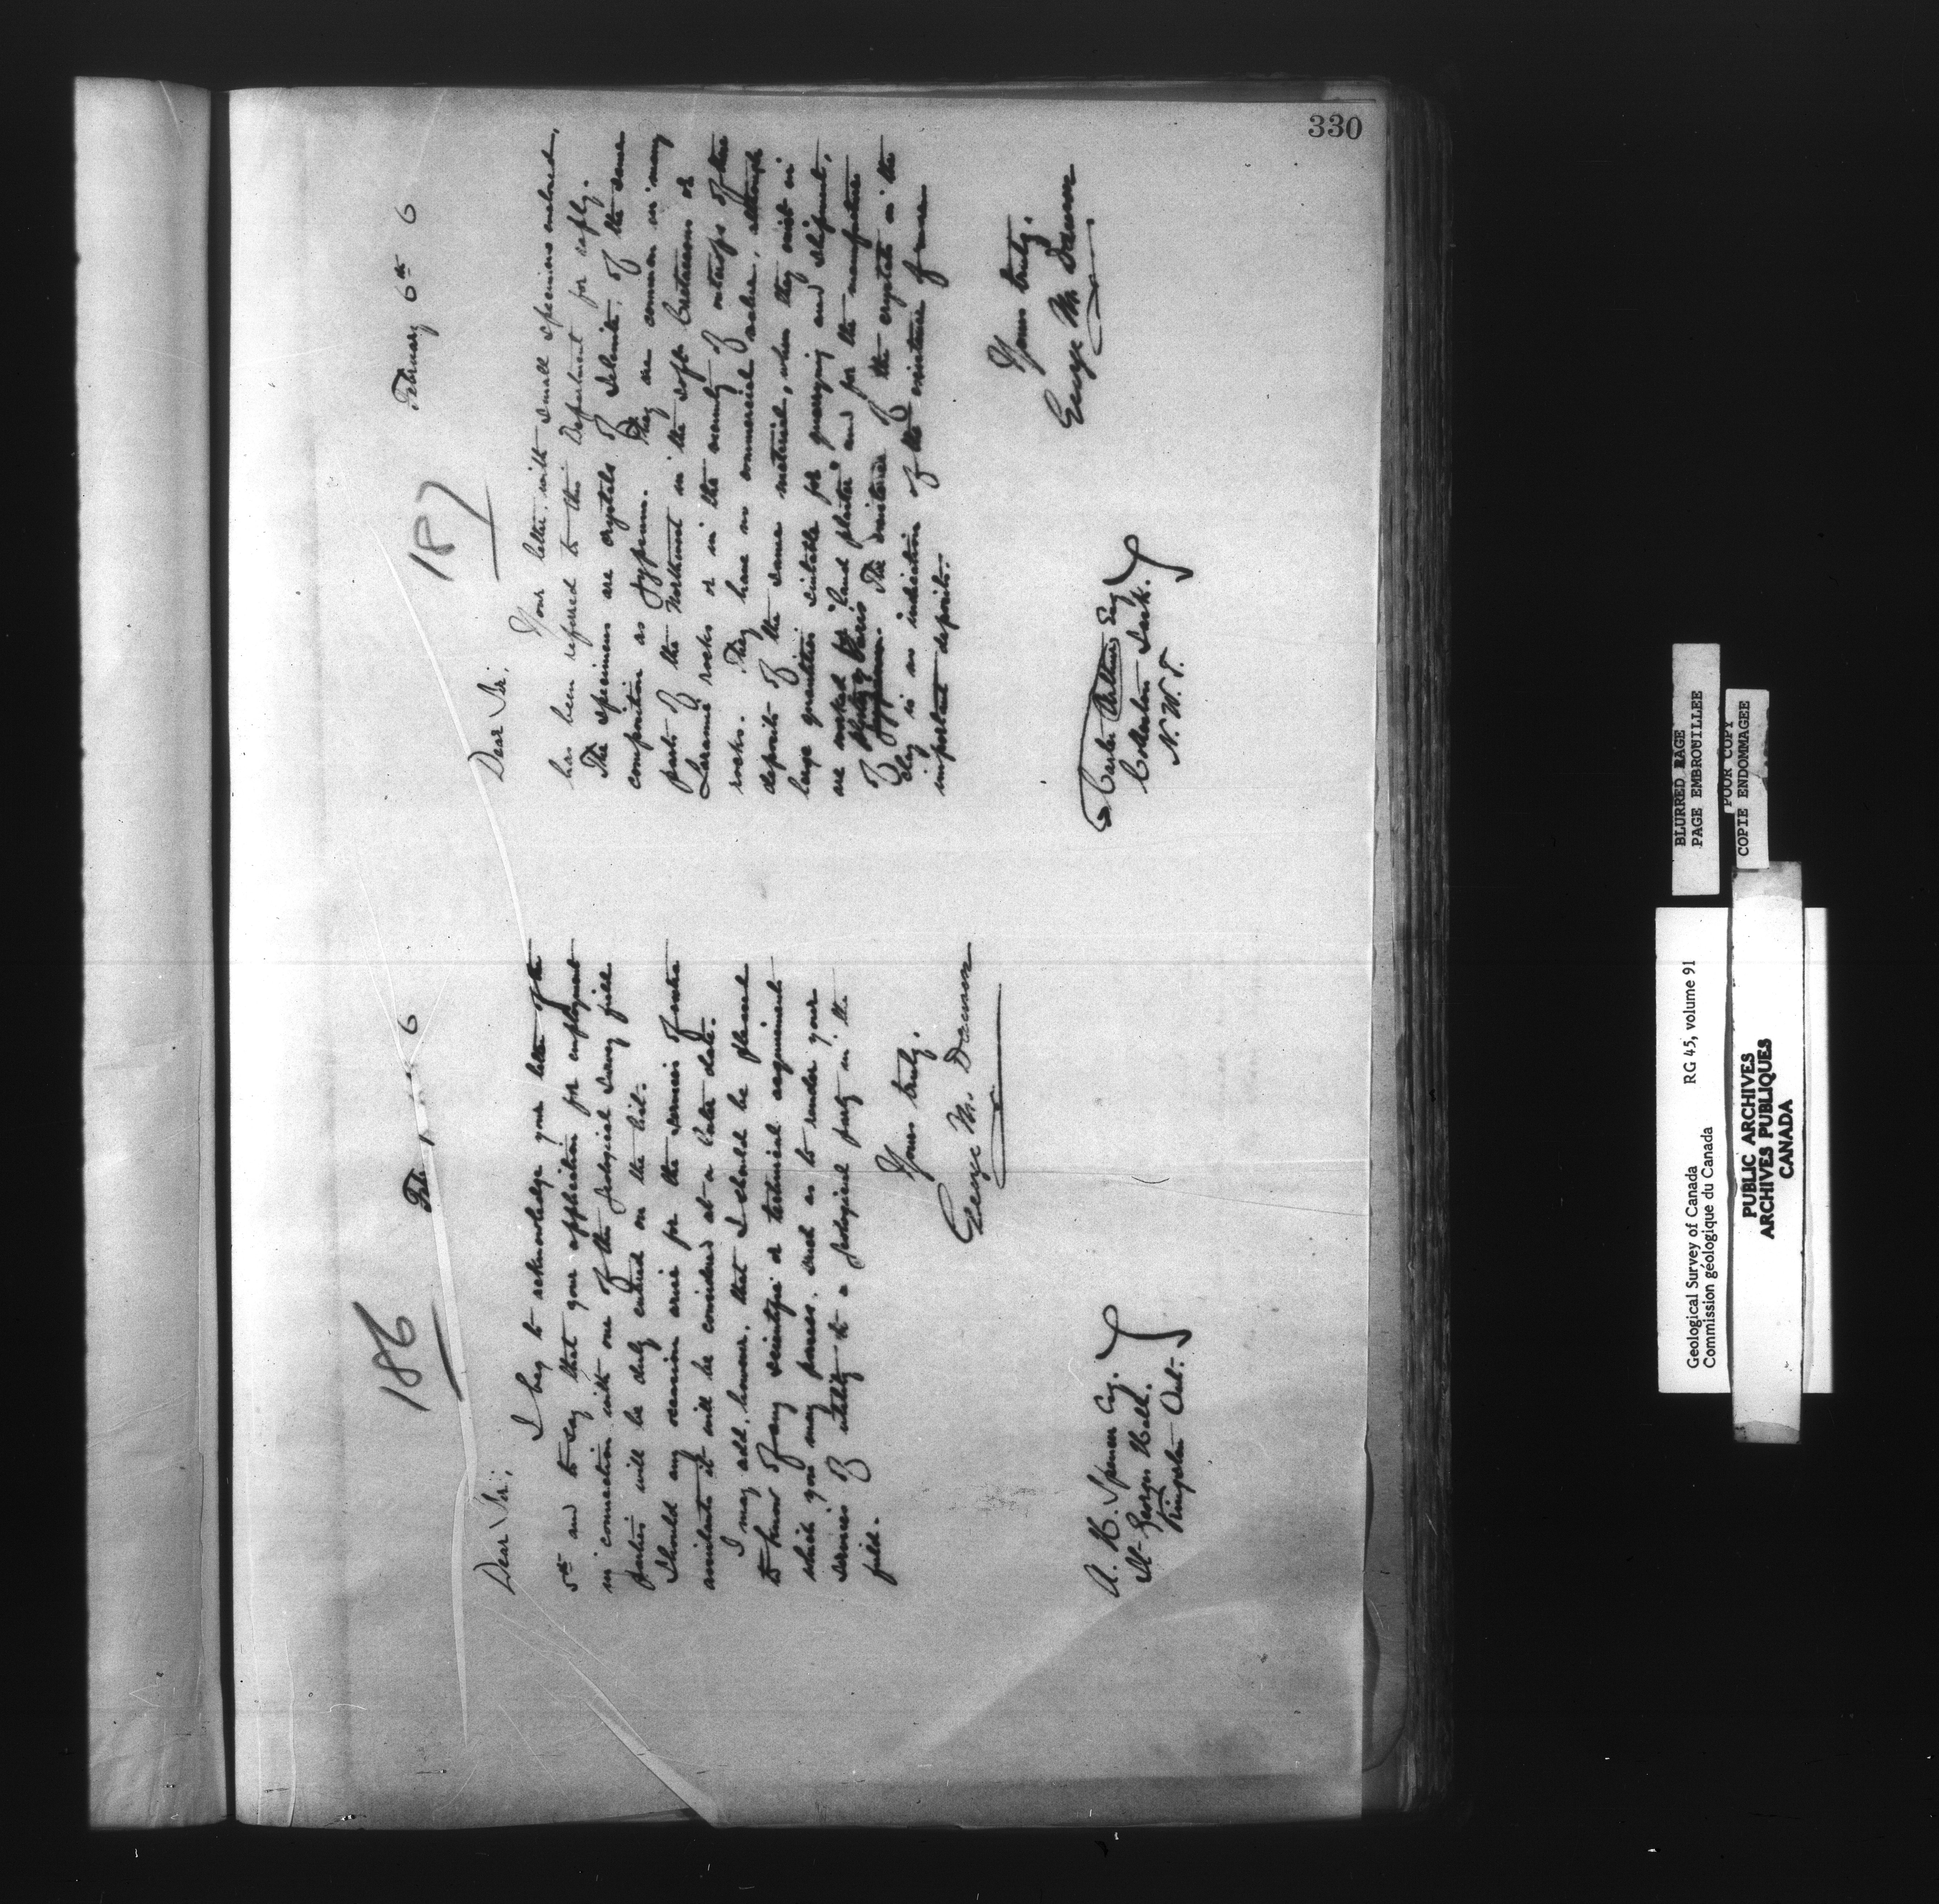 330
186
Feb 6
Dear Sir,
I beg to acknowledge your letter of the
5th and to say that your application for employment
in connection with one of the Geological Survey field
parties will be duly entered on the list.
Should any occasion arise for the services of extra
assistants it will be considered at a later date.
I may add, however, that I should be pleased
to know of any scientific or technical acquirements
which you may possess, such as to render your
services of utility to a geological party in the
field.
Yours truly,
George M. Dawson
A. H. Spencer Esq.
St George's Hall.
Kingston Ont.
187
February 6th 6
Dear Sir,
Your letter, with small specimens enclosed,
has been referred to this Department for reply.
The specimens are crystals of Selenite, of the same
composition as gypsum. They are common in many
parts of the Northwest in the soft Cretaceous or
Laramie rocks or in the vicinity of outcrops of these
rocks. They have no commercial value, although
deposits of the same material, when they exist in
large quantities suitable for quarrying and shipment,
are worked for "land plaster" and for the manufacture
of plaster of Paris. The existence of the crystals in the
clay is no indication of the existence of more
important deposits.
Yours truly,
George M. Dawson
Carter Esq
Colleston Sask.
N.W.T.
BLURRED PAGE
PAGE EMBROUILLEE
POUR COPY
COPIE ENDOMMAGEE
Geological Survey of Canada
Commission géologique du Canada
RG 45, volume 91
PUBLIC ARCHIVES
ARCHIVES PUBLIQUES
CANADA